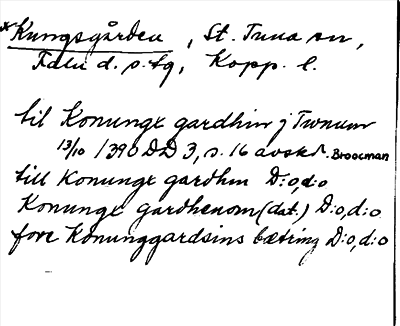 *Kungsgården, St. Tuna sn,
Falu d. s. fg, Kopp. l.
til Konungx gardhin j Twnum
13/10 1390 DD 3, s. 16 avskr. Broocman
till Konungx gardhin D:o, d:o
Konungx gardhenom (dat.) D:o, d:o
fore Konunggardsins bætring D:o, d:o